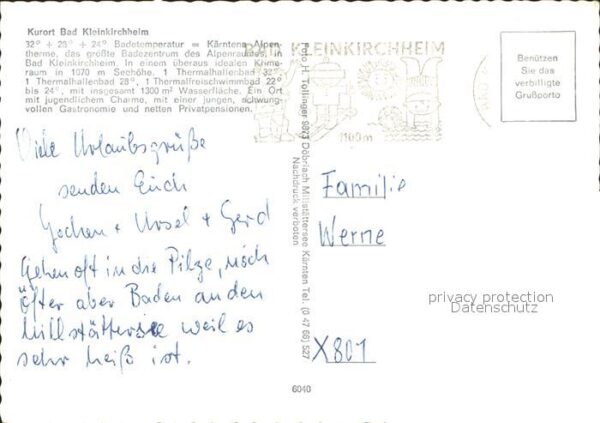 Kurort Bad Kleinkirchheim
32° + 28° + 24° Badetemperatur = Kärntens Alpen-
therme, das größte Badezentrum des Alpenraumes, in
Bad Kleinkirchheim. In einem überaus idealen Klima-
raum in 1070 m Seehöhe. 1 Thermalhallenbad 32°,
1 Thermalhallenbad 28°, 1 Thermalfreischwimmbad 22°
bis 24°, mit insgesamt 1300 m² Wasserfläche. Ein Ort
mit jugendlichem Charme, mit einer jungen, schwung-
vollen Gastronomie und netten Privatpensionen.
Viele Urlaubsgrüße
senden Euch
Jochen + Ursel + Gerd
Gehen oft in die Pilze, noch
öfter aber Baden an den
Millstättersee weil es
sehr heiß ist.
Foto H. Tollinger 9873 Döbriach Millstättersee Kärnten Tel. (0 47 66) 527
Nachdruck verboten
BAD KLEINKIRCHHEIM
1100 m
Benützen
Sie das
verbilligte
Grußporto
Familie
Werne
privacy protection
Datenschutz
X801
6040